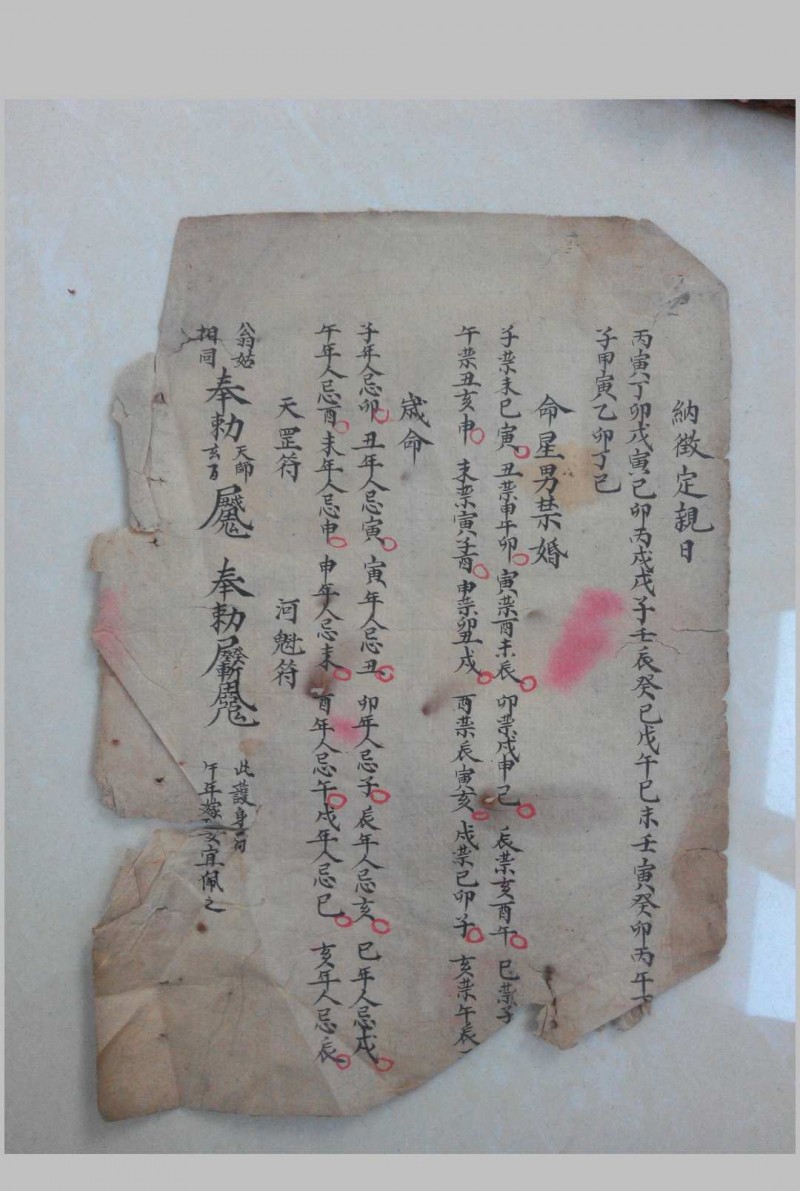 納徵定親日
丙寅丁卯戊寅己卯丙戌戊子壬辰癸巳戊午己未壬寅癸卯丙午
子甲寅乙卯丁巳
命星男禁婚
子禁未巳寅 丑禁申午卯 寅禁酉未辰 卯禁戌申巳 辰禁亥酉午 巳禁子
午禁丑亥申 未禁寅子酉 申禁卯丑戌 酉禁辰寅亥 戌禁巳卯子 亥禁午辰
歲命
子年人忌卯 丑年人忌寅 寅年人忌丑 卯年人忌子 辰年人忌亥 巳年人忌戌
午年人忌酉 未年人忌申 申年人忌未 酉年人忌午 戌年人忌巳 亥年人忌辰
天罡符 河魁符
翁姑
相同
奉勅 天師 奉勅
此護身符
午年嫁宜佩之